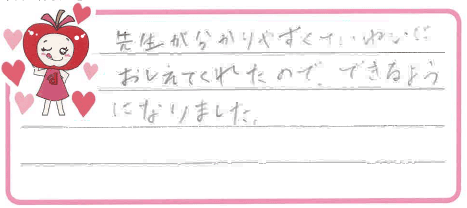 先生が分かりやすくていねいに
おしえてくれたので、できるよう
になりました。